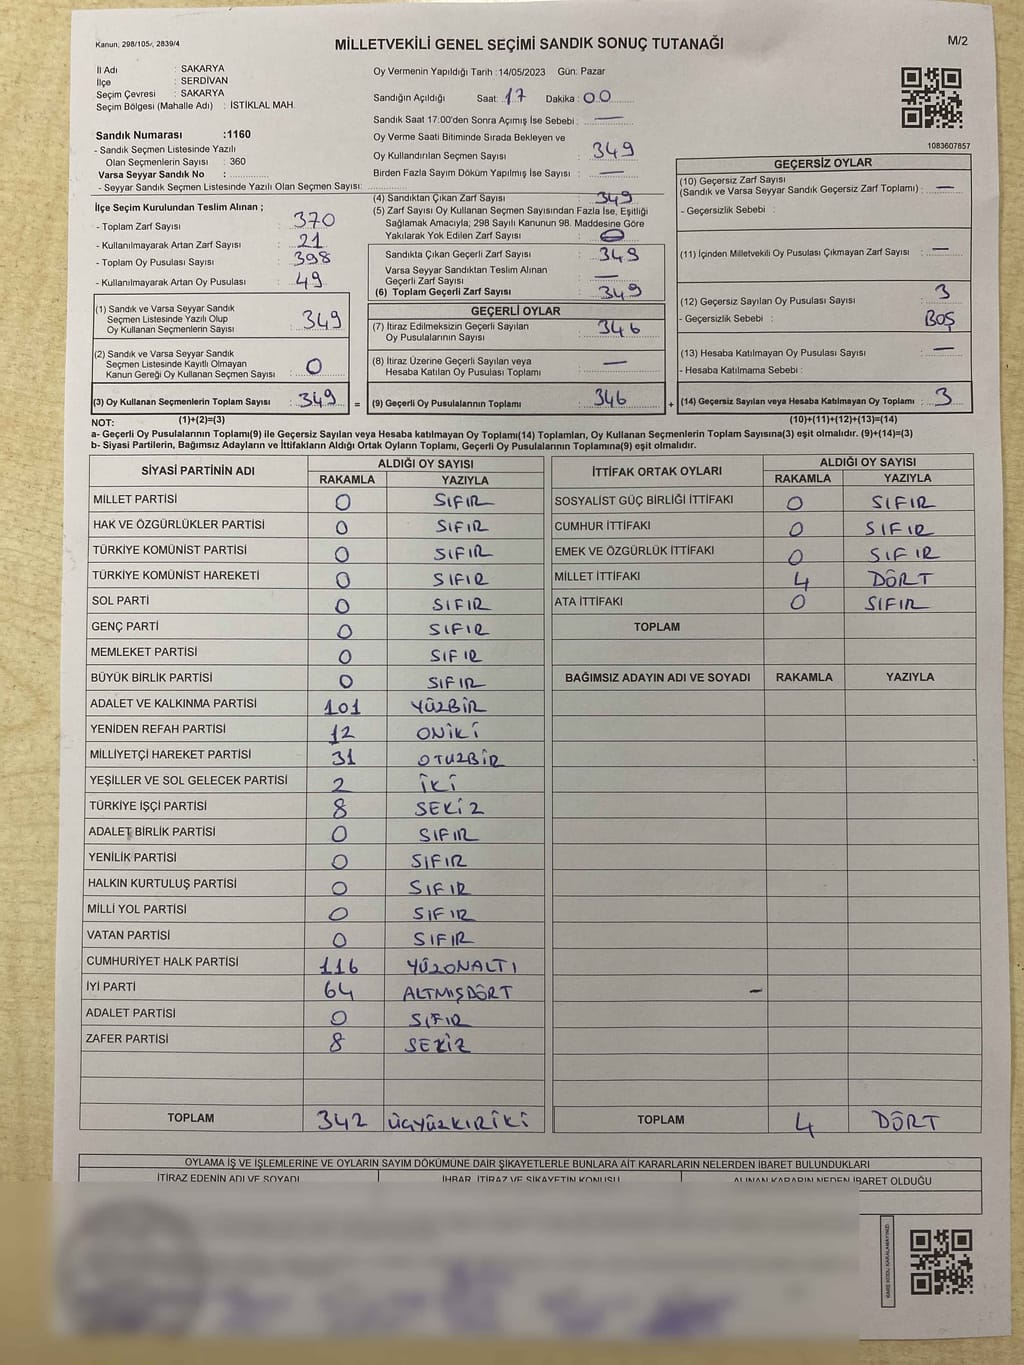 Kanun; 298/105-, 2839/4
MİLLETVEKİLİ GENEL SEÇİMİ SANDIK SONUÇ TUTANAĞI
M/2
İl Adı : SAKARYA
İlçe : SERDİVAN
Seçim Çevresi : SAKARYA
Seçim Bölgesi (Mahalle Adı) : İSTİKLAL MAH.
Sandık Numarası :1160
- Sandık Seçmen Listesinde Yazılı
Olan Seçmenlerin Sayısı : 360
Varsa Seyyar Sandık No :
- Seyyar Sandık Seçmen Listesinde Yazılı Olan Seçmen Sayısı:
Oy Vermenin Yapıldığı Tarih :14/05/2023 Gün: Pazar
Sandığın Açıldığı Saat: 17 Dakika : 00
Sandık Saat 17:00'den Sonra Açımış İse Sebebi : —
Oy Verme Saati Bitiminde Sırada Bekleyen ve
Oy Kullandırılan Seçmen Sayısı : 349
Birden Fazla Sayım Döküm Yapılmış İse Sayısı : —
1083607857
İlçe Seçim Kurulundan Teslim Alınan ;
- Toplam Zarf Sayısı : 370
- Kullanılmayarak Artan Zarf Sayısı : 21
- Toplam Oy Pusulası Sayısı : 398
- Kullanılmayarak Artan Oy Pusulası : 49
(1) Sandık ve Varsa Seyyar Sandık
Seçmen Listesinde Yazılı Olup
Oy Kullanan Seçmenlerin Sayısı : 349
(2) Sandık ve Varsa Seyyar Sandık
Seçmen Listesinde Kayıtlı Olmayan
Kanun Gereği Oy Kullanan Seçmen Sayısı : 0
(3) Oy Kullanan Seçmenlerin Toplam Sayısı : 349 =
(1)+(2)=(3)
(4) Sandıktan Çıkan Zarf Sayısı : 349
(5) Zarf Sayısı Oy Kullanan Seçmen Sayısından Fazla İse, Eşitliği
Sağlamak Amacıyla; 298 Sayılı Kanunun 98. Maddesine Göre
Yakılarak Yok Edilen Zarf Sayısı : 0
Sandıkta Çıkan Geçerli Zarf Sayısı : 349
Varsa Seyyar Sandıktan Teslim Alınan
Geçerli Zarf Sayısı : —
(6) Toplam Geçerli Zarf Sayısı : 349
GEÇERLİ OYLAR
(7) İtiraz Edilmeksizin Geçerli Sayılan
Oy Pusulalarının Sayısı : 346
(8) İtiraz Üzerine Geçerli Sayılan veya
Hesaba Katılan Oy Pusulası Toplamı : —
(9) Geçerli Oy Pusulalarının Toplamı : 346 +
GEÇERSİZ OYLAR
(10) Geçersiz Zarf Sayısı
(Sandık ve Varsa Seyyar Sandık Geçersiz Zarf Toplamı) : —
- Geçersizlik Sebebi :
(11) İçinden Milletvekili Oy Pusulası Çıkmayan Zarf Sayısı : —
(12) Geçersiz Sayılan Oy Pusulası Sayısı : 3
- Geçersizlik Sebebi : BOŞ
(13) Hesaba Katılmayan Oy Pusulası Sayısı : —
- Hesaba Katılmama Sebebi :
(14) Geçersiz Sayılan veya Hesaba Katılmayan Oy Toplamı : 3
(10)+(11)+(12)+(13)=(14)
NOT:
a- Geçerli Oy Pusulalarının Toplamı(9) ile Geçersiz Sayılan veya Hesaba katılmayan Oy Toplamı(14) Toplamları, Oy Kullanan Seçmenlerin Toplam Sayısına(3) eşit olmalıdır. (9)+(14)=(3)
b- Siyasi Partilerin, Bağımsız Adayların ve İttifakların Aldığı Ortak Oyların Toplamı, Geçerli Oy Pusulalarının Toplamına(9) eşit olmalıdır.
SİYASİ PARTİNİN ADI ALDIĞI OY SAYISI
RAKAMLA YAZIYLA
MİLLET PARTİSİ 0 SIFIR
HAK VE ÖZGÜRLÜKLER PARTİSİ 0 SIFIR
TÜRKİYE KOMÜNİST PARTİSİ 0 SIFIR
TÜRKİYE KOMÜNİST HAREKETİ 0 SIFIR
SOL PARTİ 0 SIFIR
GENÇ PARTİ 0 SIFIR
MEMLEKET PARTİSİ 0 SIFIR
BÜYÜK BİRLİK PARTİSİ 0 SIFIR
ADALET VE KALKINMA PARTİSİ 101 YÜZBİR
YENİDEN REFAH PARTİSİ 12 ONİKİ
MİLLİYETÇİ HAREKET PARTİSİ 31 OTUZBİR
YEŞİLLER VE SOL GELECEK PARTİSİ 2 İKİ
TÜRKİYE İŞÇİ PARTİSİ 8 SEKİZ
ADALET BİRLİK PARTİSİ 0 SIFIR
YENİLİK PARTİSİ 0 SIFIR
HALKIN KURTULUŞ PARTİSİ 0 SIFIR
MİLLİ YOL PARTİSİ 0 SIFIR
VATAN PARTİSİ 0 SIFIR
CUMHURİYET HALK PARTİSİ 116 YÜZONALTI
İYİ PARTİ 64 ALTMIŞDÖRT
ADALET PARTİSİ 0 SIFIR
ZAFER PARTİSİ 8 SEKİZ
TOPLAM 342 ÜÇYÜZKIRİKİ
İTTİFAK ORTAK OYLARI ALDIĞI OY SAYISI
RAKAMLA YAZIYLA
SOSYALİST GÜÇ BİRLİĞİ İTTİFAKI 0 SIFIR
CUMHUR İTTİFAKI 0 SIFIR
EMEK VE ÖZGÜRLÜK İTTİFAKI 0 SIFIR
MİLLET İTTİFAKI 4 DÖRT
ATA İTTİFAKI 0 SIFIR
TOPLAM
BAĞIMSIZ ADAYIN ADI VE SOYADI RAKAMLA YAZIYLA
—
TOPLAM 4 DÖRT
OYLAMA İŞ VE İŞLEMLERİNE VE OYLARIN SAYIM DÖKÜMÜNE DAİR ŞİKAYETLERLE BUNLARA AİT KARARLARIN NELERDEN İBARET BULUNDUKLARI
İTİRAZ EDENİN ADI VE SOYADI İHBAR, İTİRAZ VE ŞİKAYETİN KONUSU ALINAN KARARIN NEDEN İBARET OLDUĞU
KARE KODU KARALAMAYINIZ.